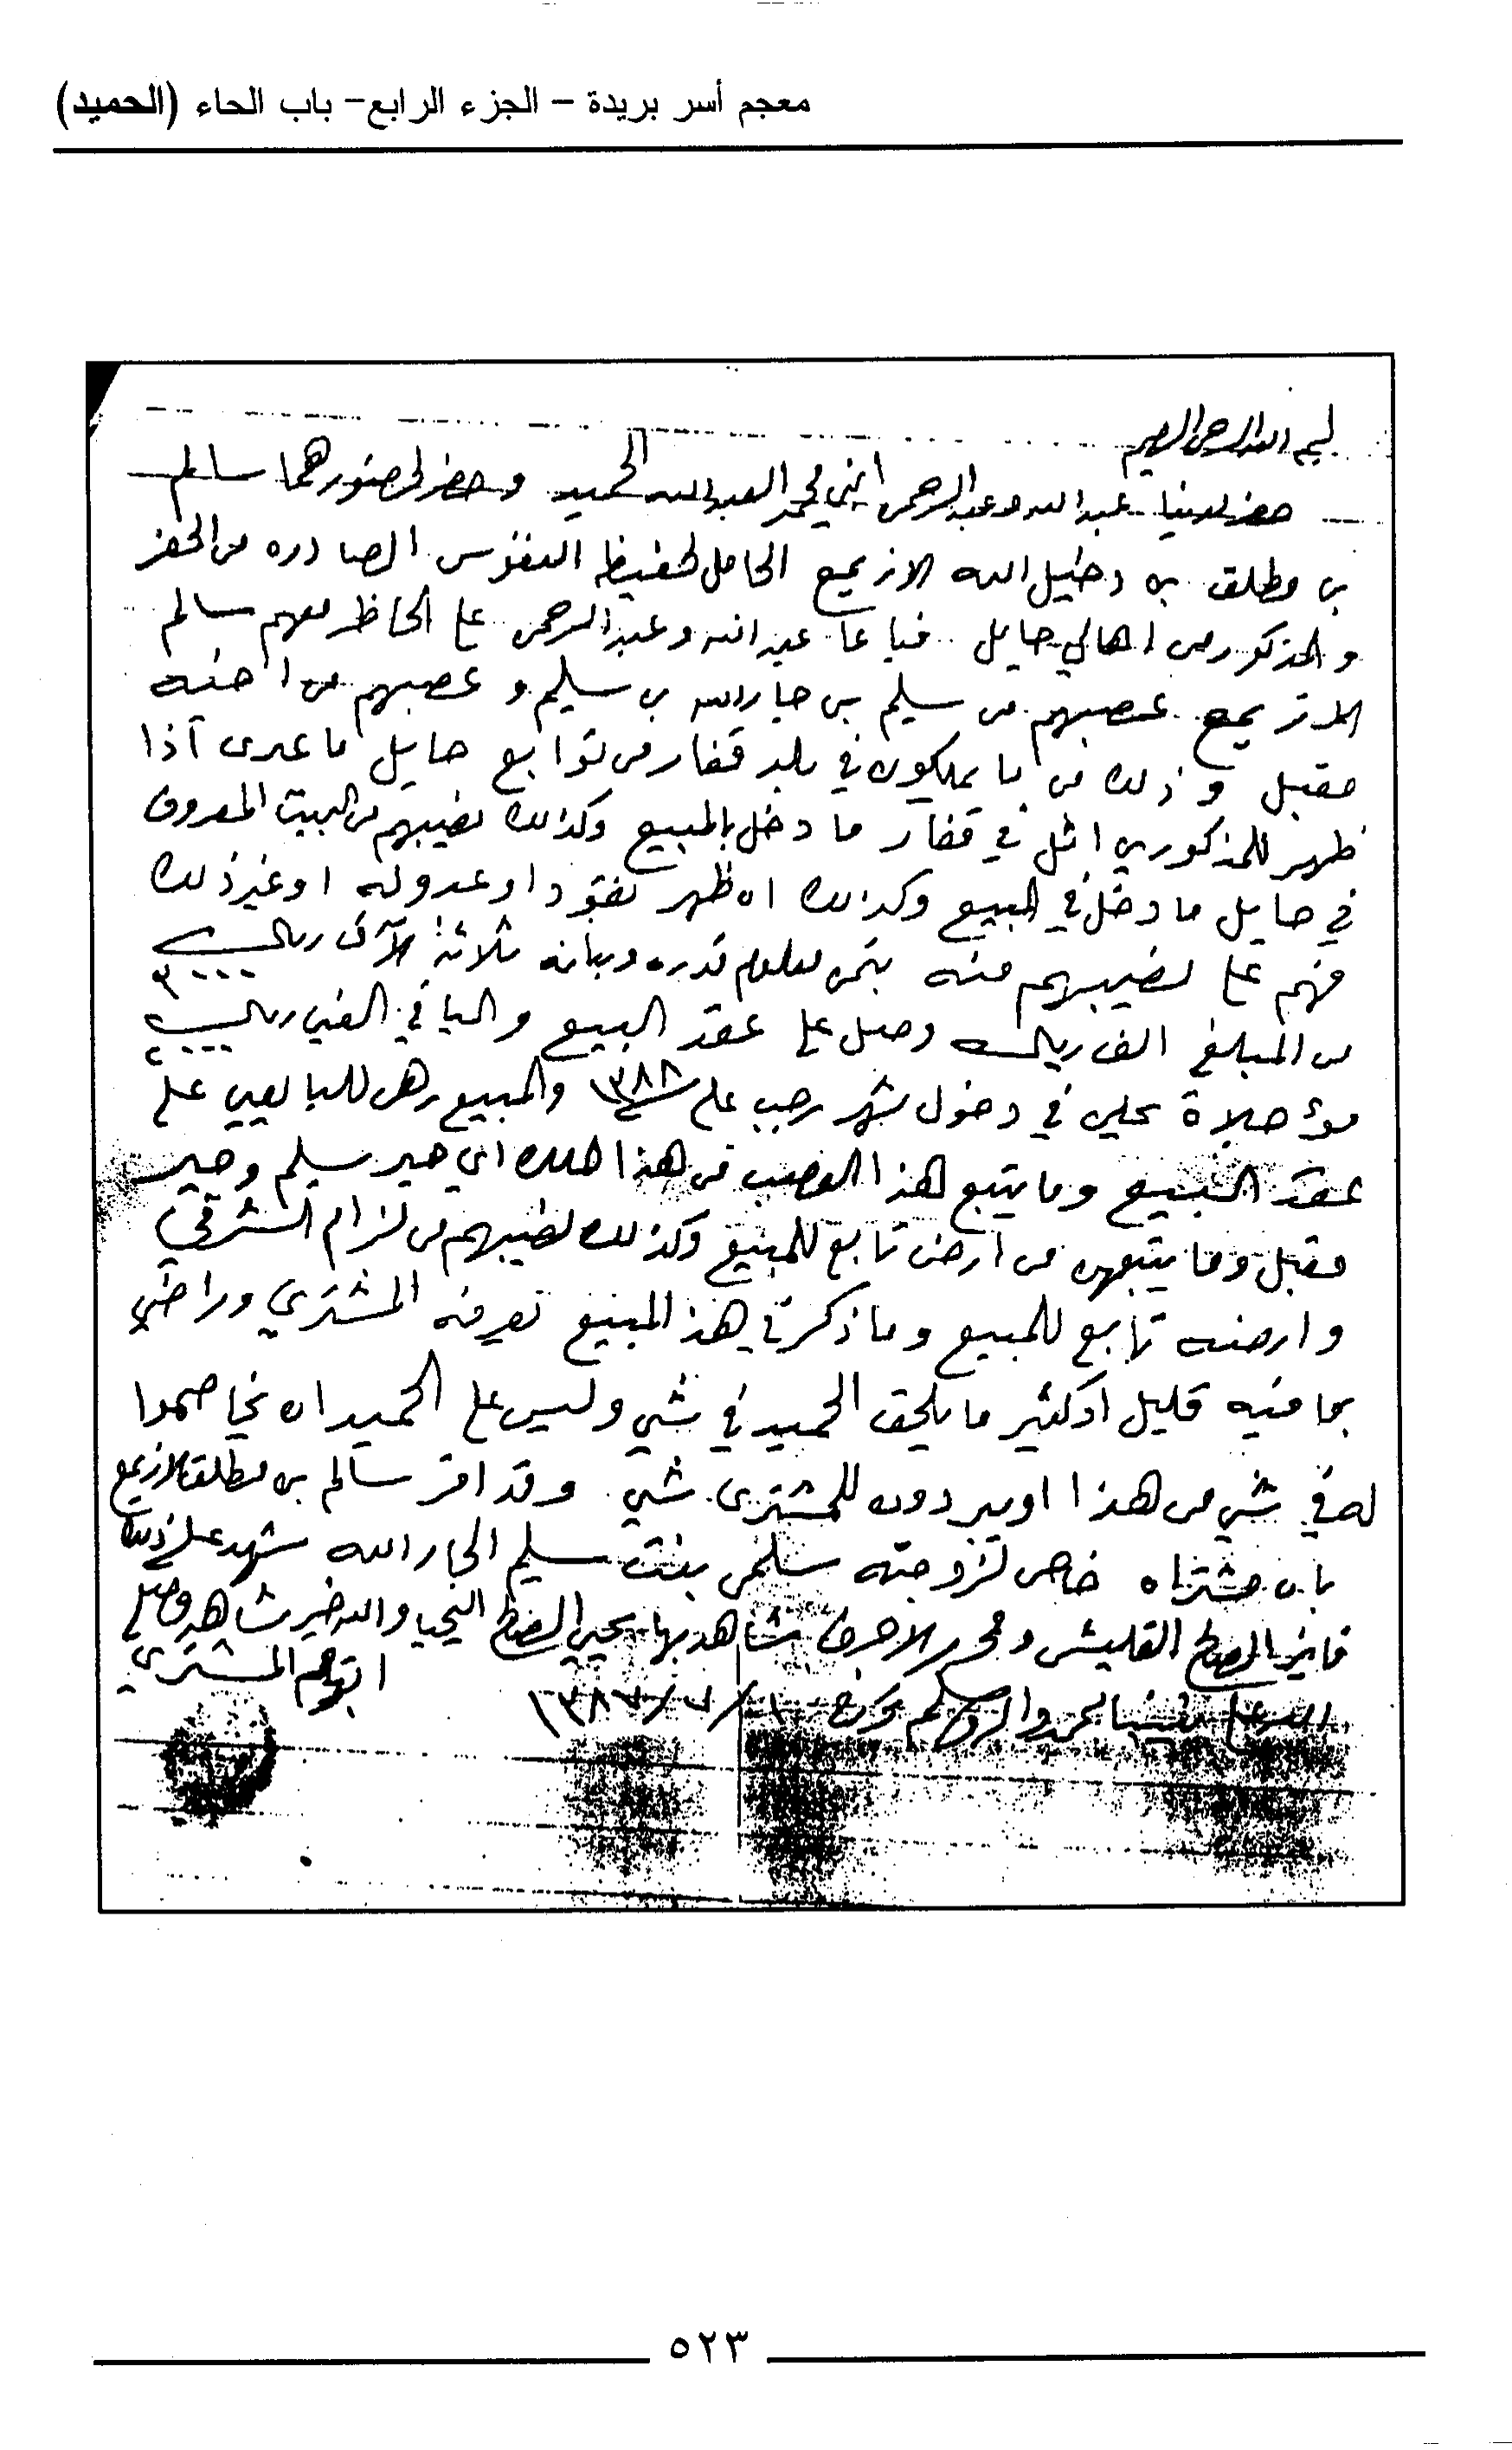 معجم أسر بريدة – الجزء الرابع– باب الحاء (الحميد)
بسم الله الرحمن الرحيم
حضر لدينا عبدالله وعبدالرحمن ابني محمد العبدالله الحميد وحضر لحضورهما سالم
بن مطلق بن دخيل الله الازيمع الحامل لحفيظة النفوس الصادره من الحفر
والمذكور من اهالي حايل فباعا عبدالله وعبدالرحمن على الحاظر معهم سالم
الازيمع عصبهم من سليم بن جارالله بن سليم وعصبهم من اخته
مقبل وذلك من ما يملكون في بلد قفار من توابع حايل ما عدى آذا
ظهر للمذكورين اثل في قفار ما دخل بالمبيع وكذلك نصيبهم من البيت المعروف
في حايل ما دخل في المبيع وكذلك ان ظهر نقود او عدوله او غير ذلك
فهم على نصيبهم منه بثمن معلوم قدره وبيانه ثلاثة الآف ريال ٣٠٠٠
من المبلغ الف ريال وصل على عقد البيع والباقي الفين ريال ٢٠٠٠
مؤجلاة يحلين في دخول شهر رجب عام ١٣٨٨ والمبيع رهن للبايعين على
عقد البيع وما يتبع لهذا العصب من هذا الملك اي حير سليم وحير
مقبل وما يتبعهن من ارض تابع للمبيع وكذلك نصيبهم من لزام الشرقي
وارضه تابع للمبيع وما ذكر في هذ المبيع تعرفه المشتري وراضي
بما فيه قليل او كثير ما يلحق الحميد في شي وليس على الحميد ان يخاصموا
له في شي من هذا او يردون للمشتري شي وقد اقر سالم بن مطلق الازيمع
بان مشتراه خاص لزوجته سلمى بنت سليم الجارالله شهد على ذلك
فايز الصالح القليش ومحرر الاحرف شاهد بها يحيى الصالح اليحيا والله خير شاهد وصلى
الله على نبينا محمد واله وصحبه وسلم حرر ١٠/٧/١٣٨٧
ابهام المشتري
٥٢٣